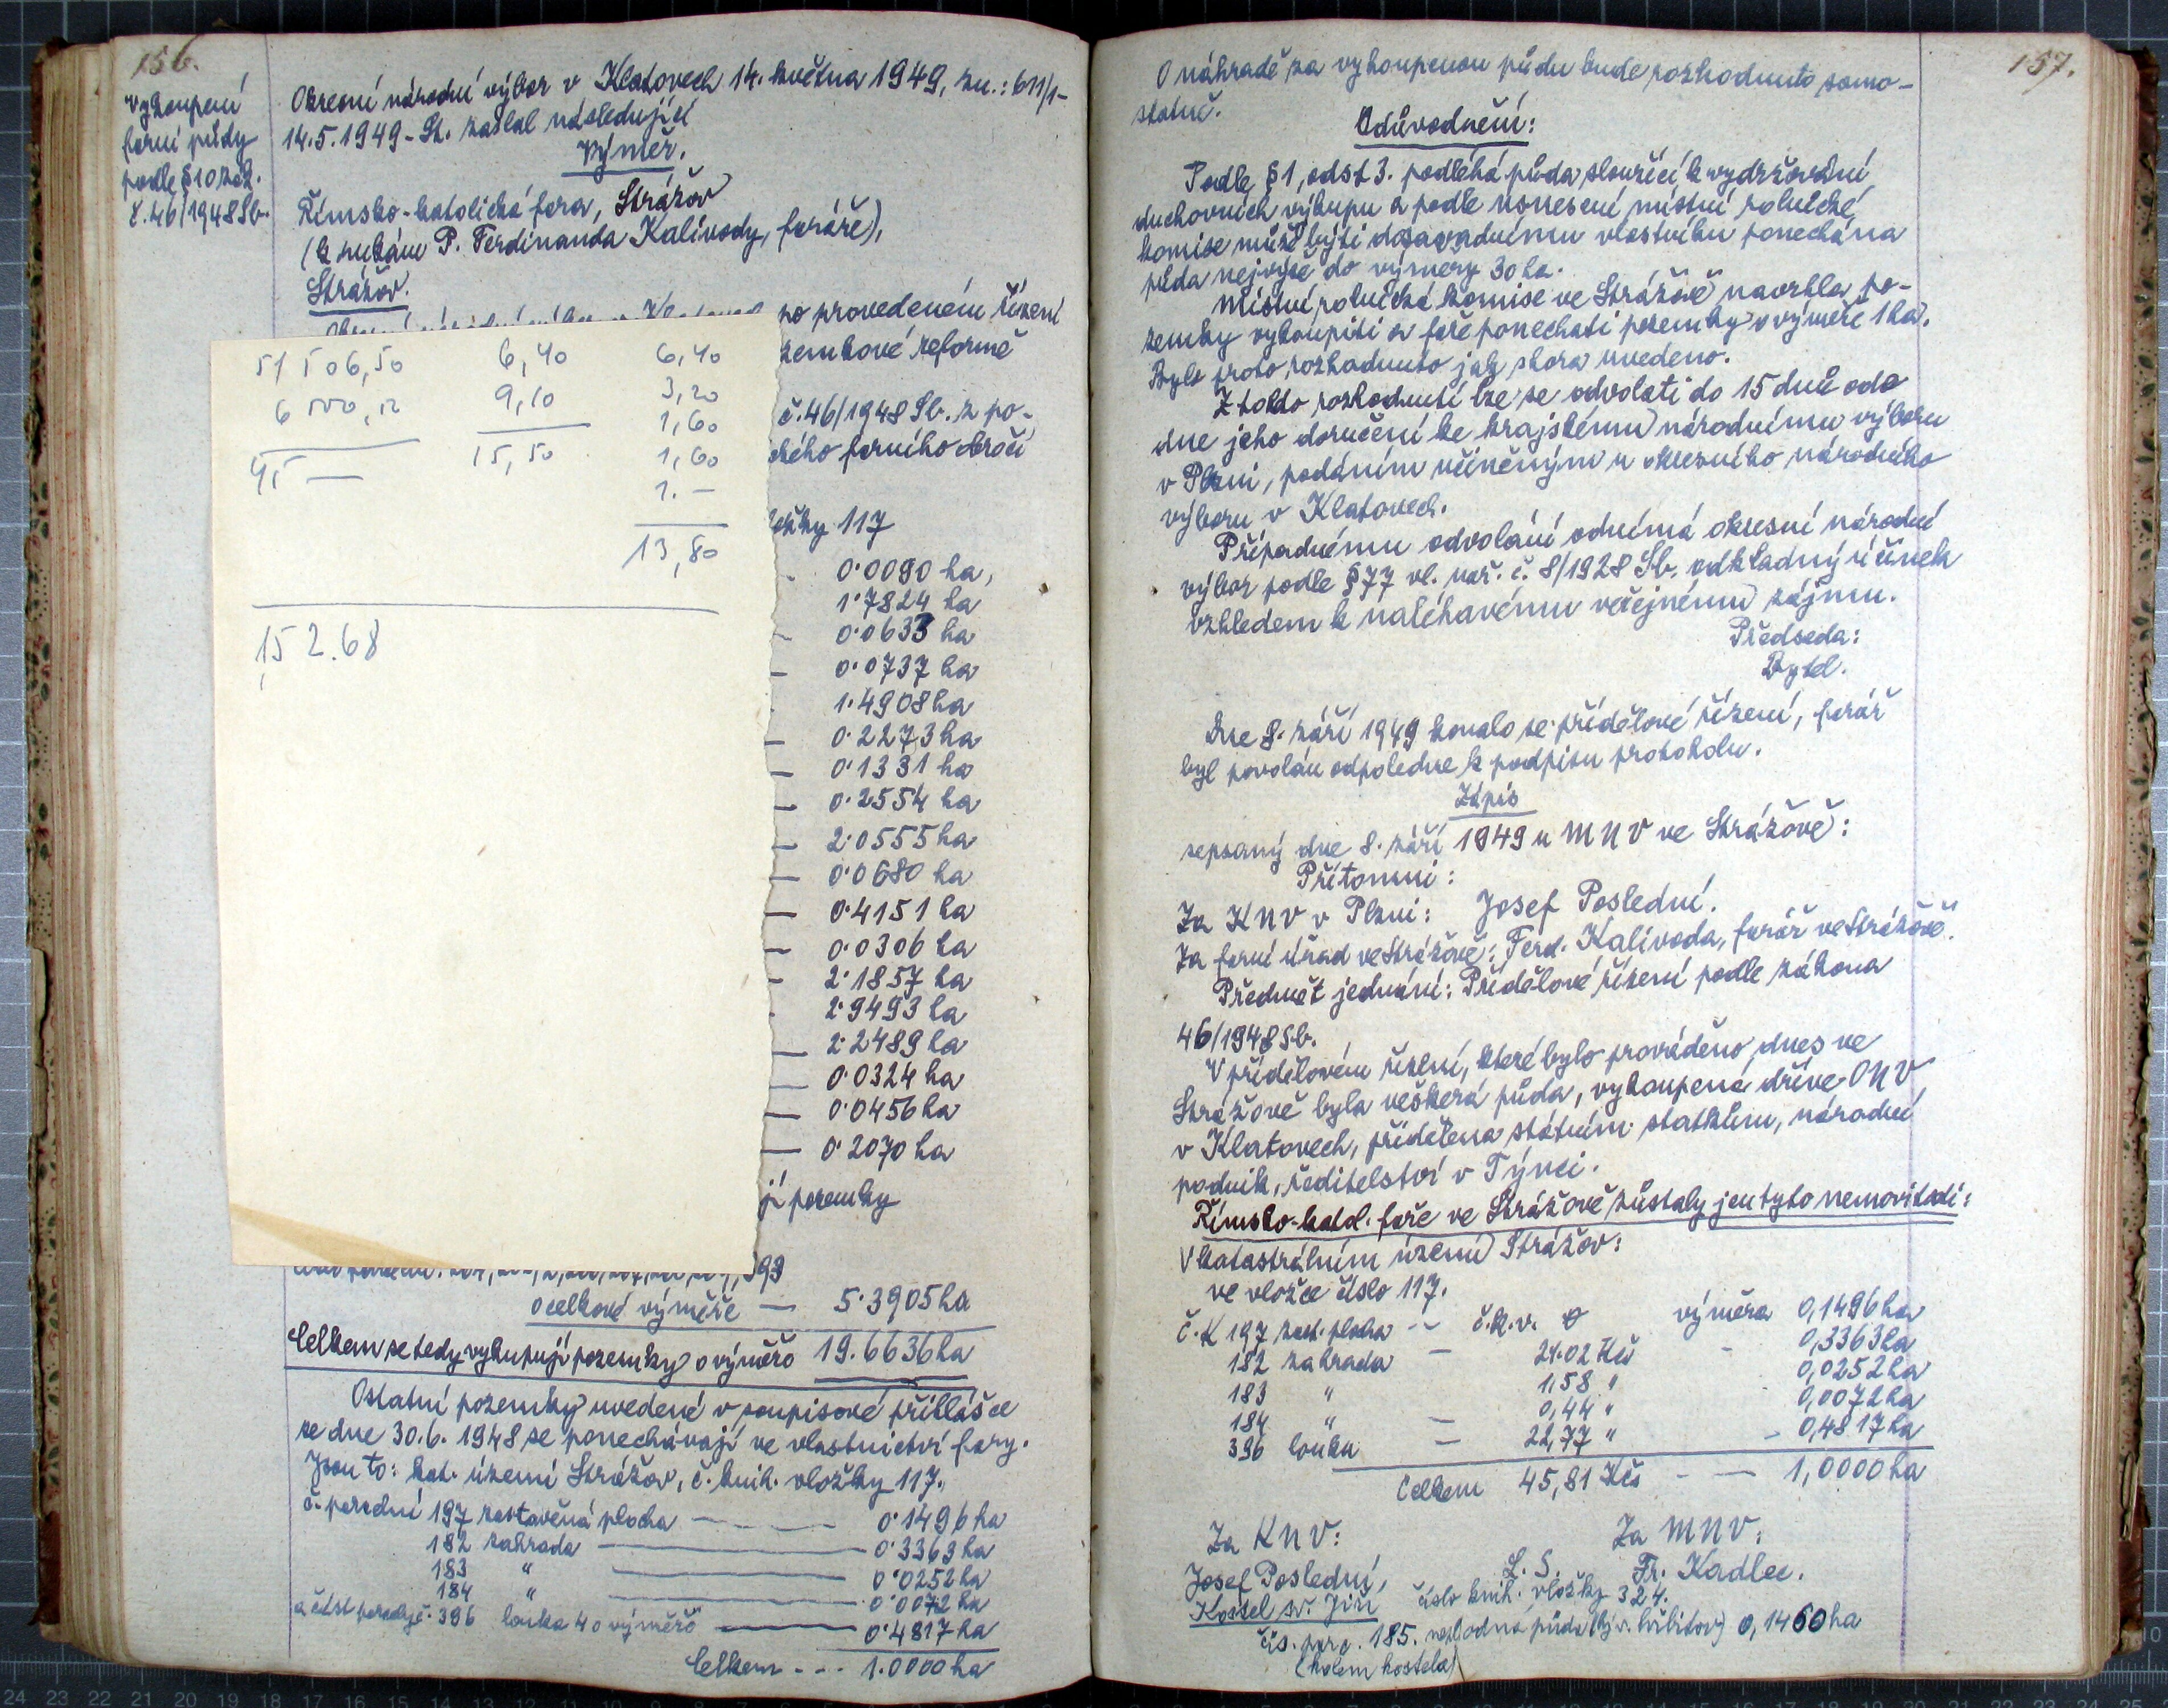 156.
Vykoupení
farní půdy
podle §10 zák.
č. 46/1948 Sb.
Okresní národní výbor v Klatovech 14. května 1949, zn.: 611/1-
14.5.1949-St. zaslal následující
Výměr.
Římsko-katolická fara, Strážov
(k rukám P. Ferdinanda Kalivody, faráře),
Strážov.
po provedeném řízení
zemkové reformě
č. 46/1948 Sb. z po-
ckého farního obročí
ložky 117
0·0090 ha,
1·7824 ha
0·0633 ha
0·0737 ha
1·4908 ha
0·2273 ha
0·1331 ha
0·2554 ha
2·0555 ha
0·0680 ha
0·4151 ha
0·0306 ha
2·1857 ha
2·9493 ha
2·2489 ha
0·0324 ha
0·0456 ha
0·2070 ha
jí pozemky
393
o celkové výměře — 5·3905 ha
Celkem se tedy vykupují pozemky o výměře 19.6636 ha
Ostatní pozemky uvedené v soupisové přihlášce
ze dne 30.6. 1948 se ponechávají ve vlastnictví fary.
Jsou to: kat. území Strážov, č. knih. vložky 117.
č. parcelní 197 zastavěná plocha — 0·1496 ha
182 zahrada — 0·3363 ha
183 " — 0·0252 ha
184 " — 0·0072 ha
a část parcely č. 396 louka 4 o výměře — 0·4817 ha
Celkem --- 1.0000 ha
51 506,50 6,40 6,40
9,10 3,20
1,60
15,50 1,60
1.—
13,80
152.68
157.
O náhradě za vykoupenou půdu bude rozhodnuto samo-
statně.
Odůvodnění:
Podle §1, odst 3. podléhá půda sloužící k vydržování
duchovních výkupu a podle usnesení místní rolnické
komise může býti dosavadnímu vlastníku ponechána
půda nejvýše do výměry 30 ha.
Místní rolnická komise ve Strážově navrhla po-
zemky vykoupiti a faře ponechati pozemky o výměře 1 ha.
Bylo proto rozhodnuto jak shora uvedeno.
Z tohoto rozhodnutí lze se odvolati do 15 dnů ode
dne jeho doručení ke krajskému národnímu výboru
v Plzni, podáním učiněným u okresního národního
výboru v Klatovech.
Případnému odvolání odnímá okresní národní
výbor podle §77 vl. nař. č. 8/1928 Sb. odkladný účinek
vzhledem k naléhavému veřejnému zájmu.
Předseda:
Bytel.
Dne 8. září 1949 konalo se přídělové řízení, farář
byl povolán odpoledne k podpisu protokolu.
Zápis
sepsaný dne 8. září 1949 u MNV ve Strážově:
Přítomni:
Za KNV v Plzni: Josef Poslední.
Za farní úřad ve Strážově: Ferd. Kalivoda, farář ve Strážově.
Předmět jednání: Přídělové řízení podle zákona
46/1948 Sb.
V přídělovém řízení, které bylo prováděno dnes ve
Strážově byla veškerá půda, vykoupená dříve ONV
v Klatovech, přidělena státním statkům, národní
podnik, ředitelství v Týnci.
Římsko-katol. faře ve Strážově zůstaly jen tyto nemovitosti:
V katastrálním území Strážov:
ve vložce číslo 117.
č. k 197 zast. plocha -- č.k.v. 0 výměra 0,1496 ha
182 zahrada — 21.02 Kčs - 0,3363 ha
183 " 1,58 " 0,0252 ha
184 " — 0,44 " 0,0072 ha
396 louka — 22,77 " - 0,4817 ha
Celkem 45,81 Kčs -- 1,0000 ha
Za KNV: Za MNV:
Josef Poslední, L. S. Fr. Kadlec.
Kostel sv. Jiří číslo knih. vložky 324.
čís. parc. 185. neplodná půda (býv. hřbitov) 0,1460 ha
(kolem kostela)